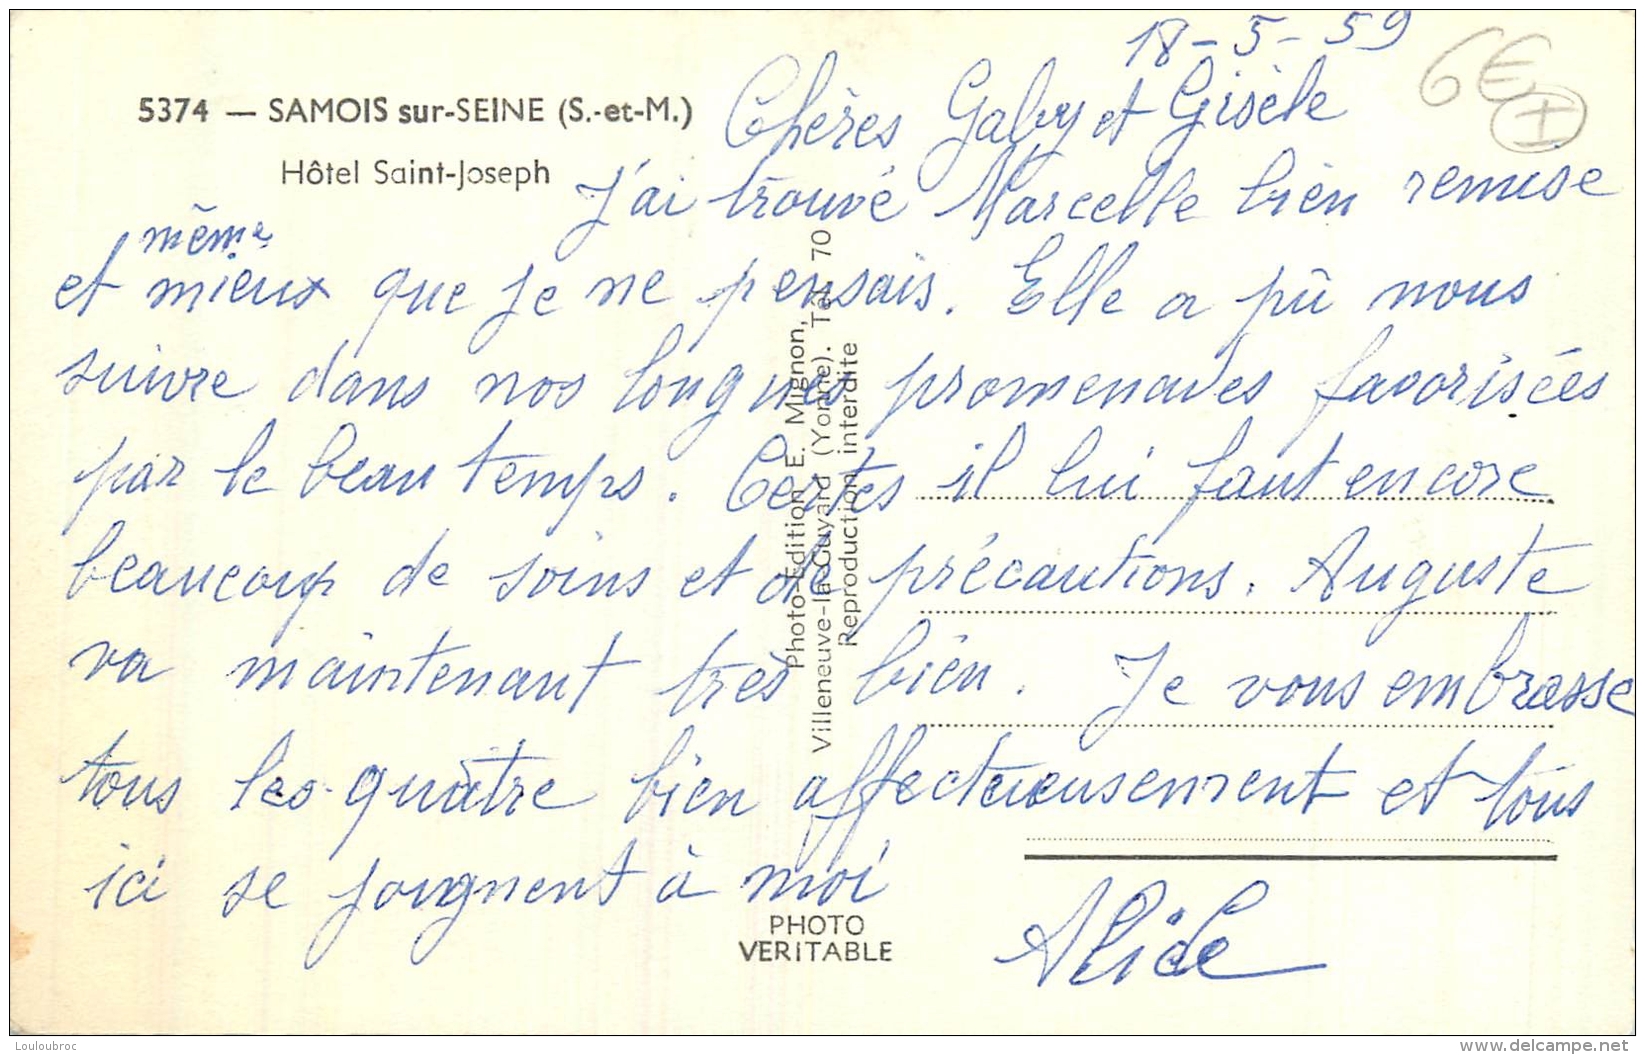 18-5-59
6€
5374 — SAMOIS sur-SEINE (S.-et-M.)
Hôtel Saint-Joseph
Chères Gaby et Gisèle
J'ai trouvé Marcelle bien remise
même
et mieux que je ne pensais. Elle a pû nous
suivre dans nos longues promenades favorisées
par le beau temps. Certes il lui faut encore
beaucoup de soins et de précautions. Auguste
va maintenant très bien. Je vous embrasse
tous les quatre bien affectueusement et tous
ici se joignent à moi
Alice
Photo-Edition E. Mignon,
Villeneuve-la-Guyard (Yonne). Tél. 70
Reproduction interdite
PHOTO
VERITABLE
Louloubroc
www.delcampe.net